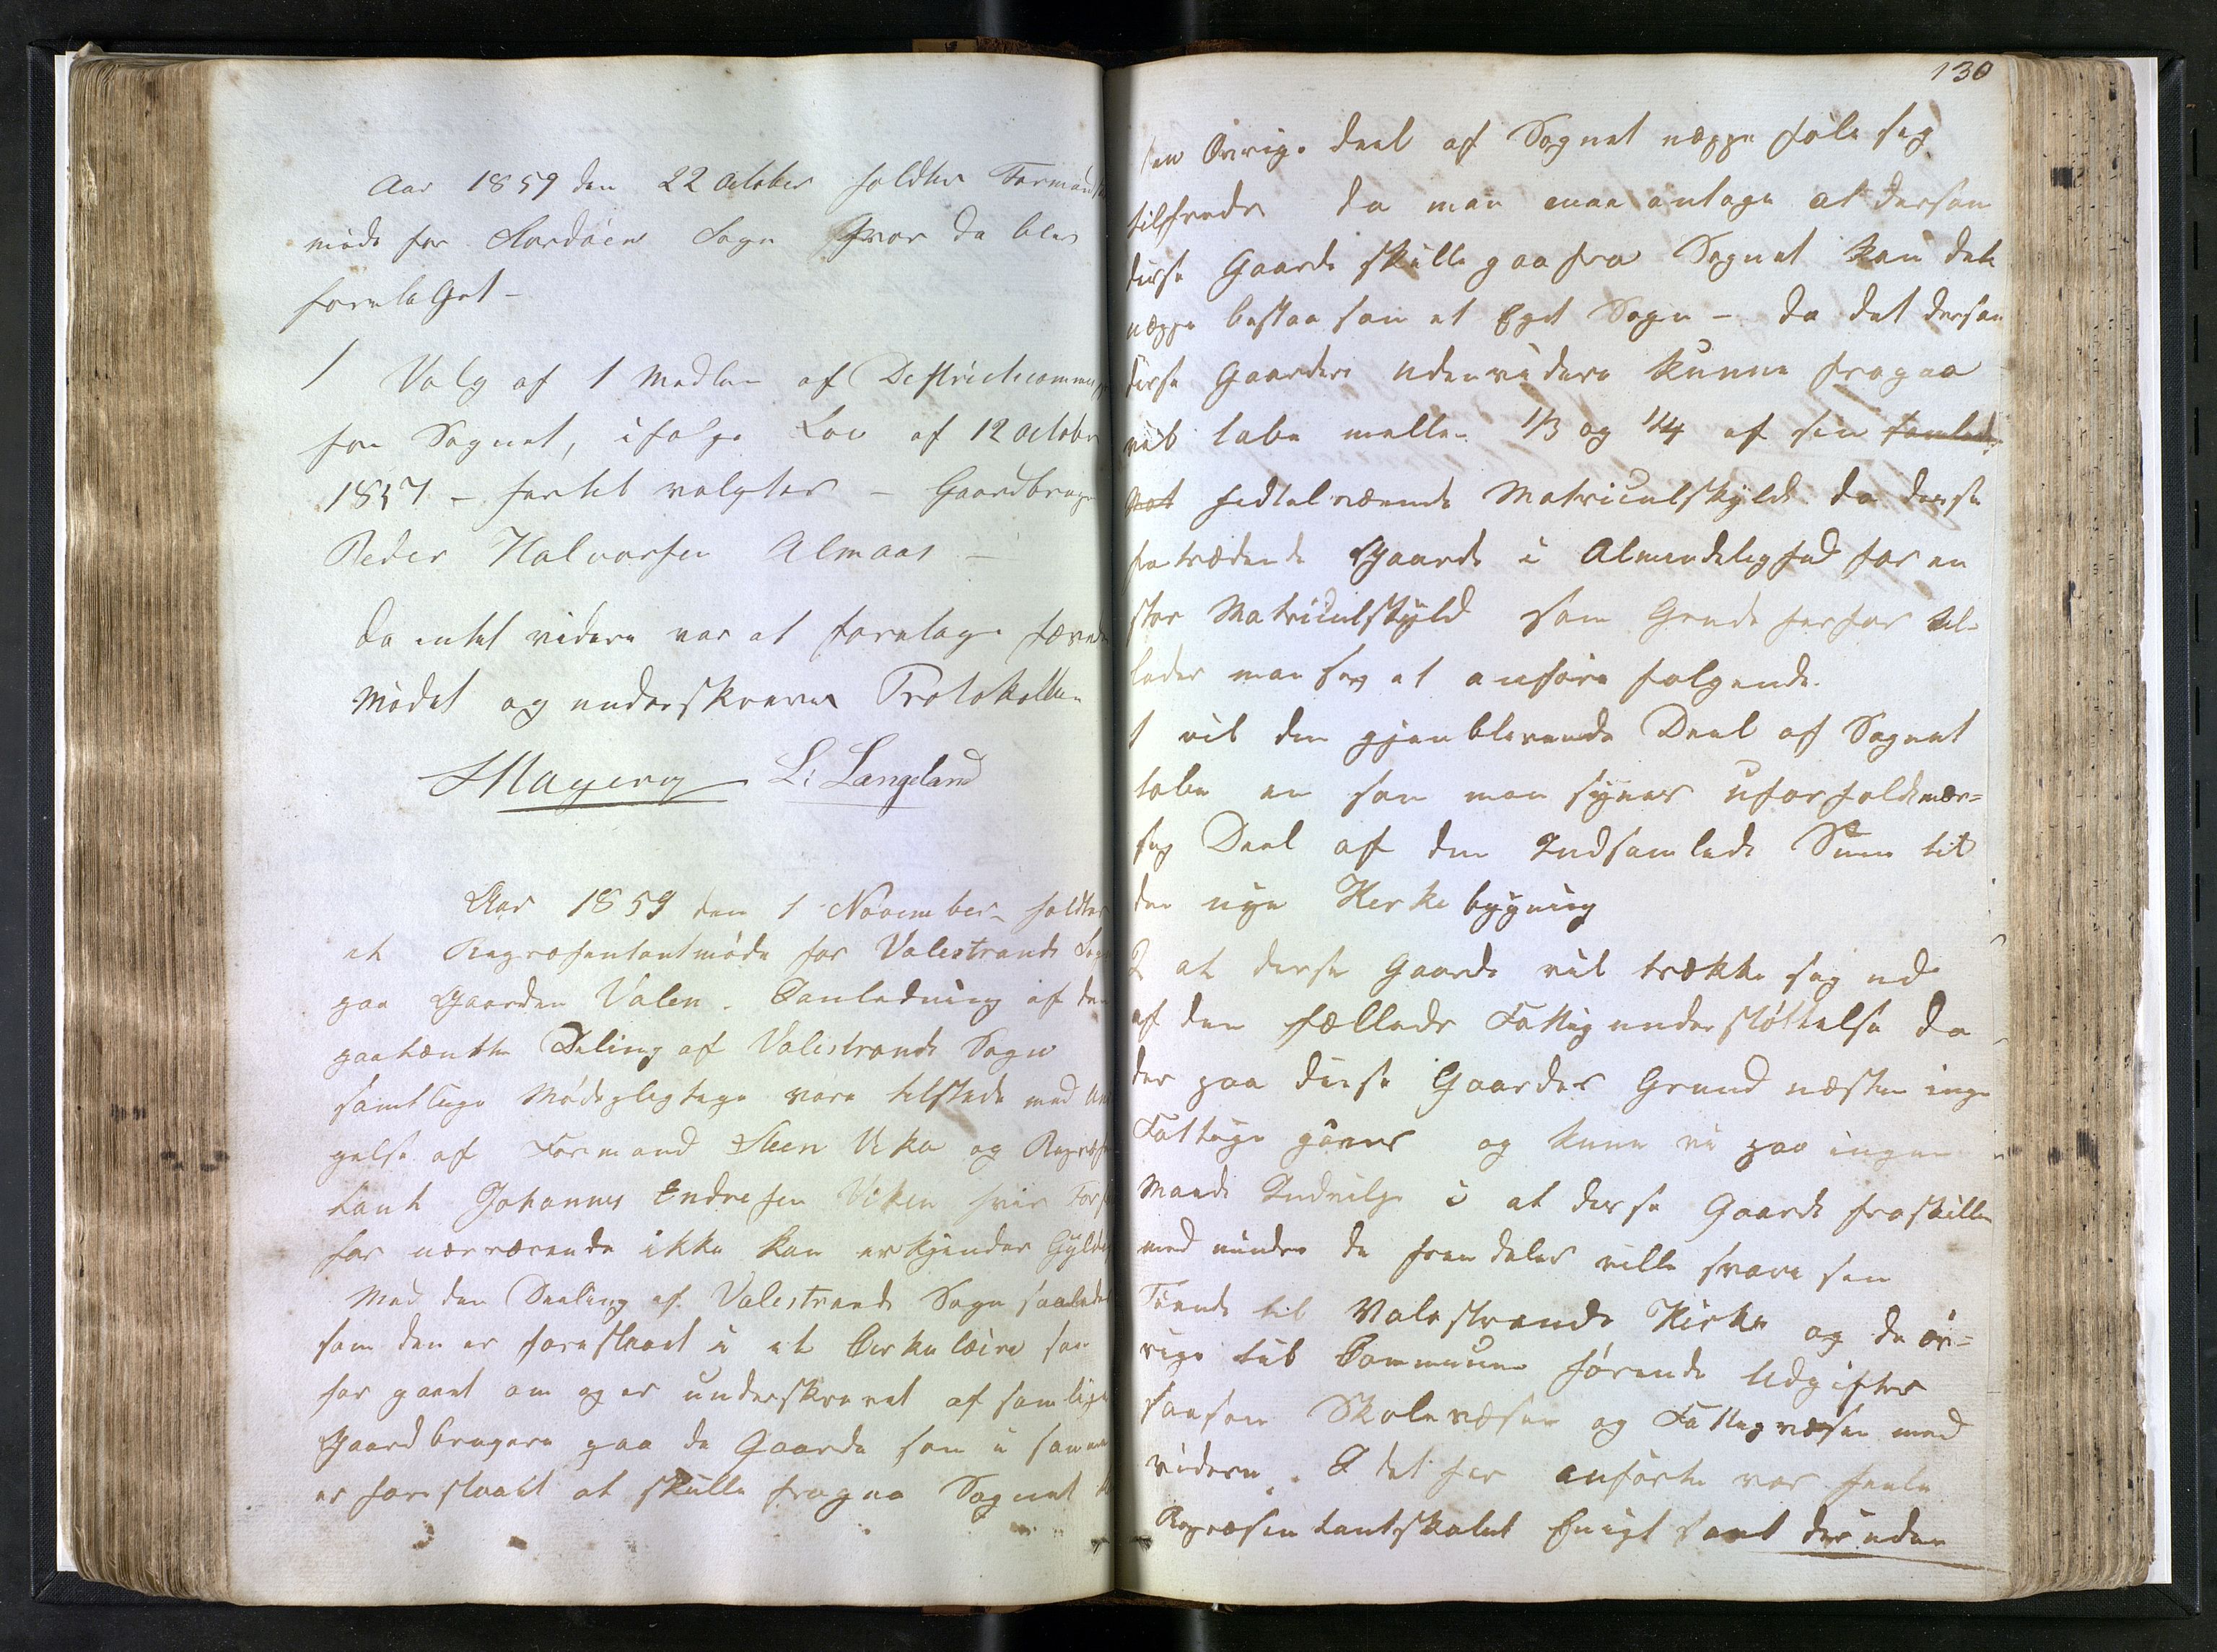 Aar 1859 den 22 October holdtes Formands
møde for Stordøen Sogn hvor da blev
foretaget –
1 Valg af 1 Medlem af Districtscommis
for Sognet, ifølge Lov af 12 Octobr
1857 – hertil valgtes – Gaardbruger
Peder Halvorsen Almaas –
Da intet videre var at foretage hæved
Mødet og underskreves Protokollen
Magerøy L: Langeland
Aar 1859 den 1 November holdtes
et Repræsentantmøde for Valestrands Sogn
paa Gaarden Valen. Canledning af den
paatænkte Deling af Valestrands Sogn
samtlige Mødepligtige vare tilstede med Und
gelse af Formand Steen Vika og Repræsen
tant Johannes Endresen Viken hvis Forf
for nærværende ikke kan erkjendes Gyldig
Med den Deeling af Valestrands Sogn saaledes
som den er foreslaaet i et Cirkulære som
har gaaet om og er underskrevet af samtlige
Gaardbrugere paa de Gaarde som i samme
er foreslaaet at skulle fragaa Sognet
130
den Øvrige Deel af Sognet neppe føle sig
tilfreds da man maa antage at dersom
disse Gaarde skulle gaa fra Sognet kan dete
neppe bestaa som et Eget Sogn – da det dersom
disse Gaarder udenvidere kunne fragaa
vil tabe mellem 1/3 og 1/4 af sin samlede
hidtilværende Matriculskyld da disse
fratrædende Gaarde i Almindelighed har en
stor Matriculskyld som Grunde herfor til-
lader man sig at anføre følgende.
1 vil den gjenblivende Deel af Sognet
tabe en som man synes uforholdsmæs=
sig Deel af den Indsamlede Sum til
den nye Kirkebygning
2 at disse Gaarde vil trække sig ud
af den fælleds Fattigunderstøttelse da
der paa disse Gaarders Grund næsten inge
Fattige gives og kunn vi paa ingen
Maade Indvilge i at disse Gaarde fraskilles
med mindre de fremdeles ville svare sin
Tiende til Valestrands Kirke og de øv=
rige til Communen hørende Udgifter
saasom Skolevæsen og Fattigvæsen med
videre. I det her anførte var heele
Repræsentantskabet Enigt samt desuden